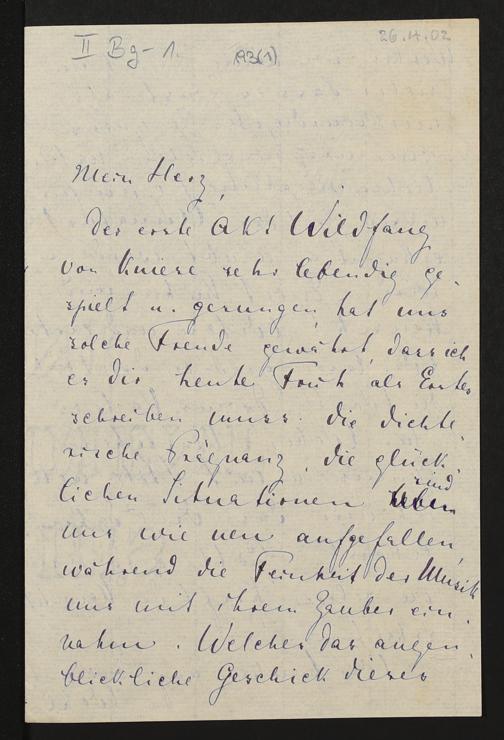 II Bg-1.
(93(1)
26.4.02
Mein Herz,
Der erste Akt Wildfang
von Kniese sehr lebendig ge-
spielt u. gesungen, hat uns
solche Freude gewährt, dass ich
es dir heute Früh als Erstes
schreiben muss. die dichte-
rische Prägnanz, die glück-
lichen Situationen sind
uns wie neu aufgefallen,
während die Feinheit der Musik
uns mit ihrem Zauber ein-
nahm. Welches das augen-
blickliche Geschick dieses